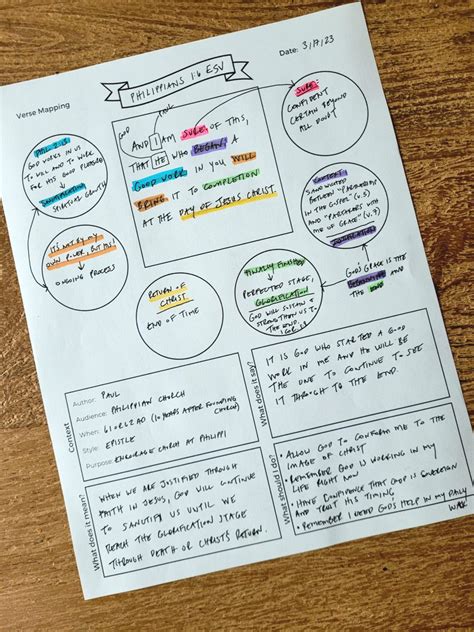 Date: 3/17/23
Verse Mapping
PHILIPPIANS 1:6 ESV
GOD
PAUL
AND I AM SURE OF THIS,
THAT HE WHO BEGAN A
GOOD WORK IN YOU WILL
BRING IT TO COMPLETION
AT THE DAY OF JESUS CHRIST.
SURE:
CONFIDENT
CERTAIN BEYOND
ALL DOUBT
PHIL 2:13
GOD WORKS IN US
TO WILL AND TO WORK
FOR HIS GOOD PLEASURE
SANCTIFICATION
SPIRITUAL GROWTH
CONTEXT:
SANDWICHED
BETWEEN "PARTNERSHIP
IN THE GOSPEL" (v.5)
AND "PARTAKERS WITH
ME OF GRACE" (v.7)
GOD'S GRACE IS THE
BEGINNING AND
THE END
IT'S NOT BY MY
OWN POWER, BUT HIS!
ONGOING PROCESS
RETURN OF
CHRIST
END OF TIME
FINALLY FINISHED
PERFECTED STAGE,
GLORIFICATION
GOD WILL SUSTAIN &
STRENGTHEN US TO
THE END
1 COR 1:8
Context
Author: PAUL
Audience: PHILIPPIAN CHURCH
When: 61 OR 62 AD (10 YEARS AFTER FOUNDING
CHURCH)
Style: EPISTLE
Purpose: ENCOURAGE CHURCH AT PHILIPPI
What does it say?
IT IS GOD WHO STARTED A GOOD
WORK IN ME AND HE WILL BE
THE ONE TO CONTINUE TO SEE
IT THROUGH TO THE END.
What does it mean?
WHEN WE ARE JUSTIFIED THROUGH
FAITH IN JESUS, GOD WILL CONTINUE
TO SANCTIFY US UNTIL WE
REACH THE GLORIFICATION STAGE
THROUGH DEATH OR CHRIST'S RETURN.
What should I do?
• ALLOW GOD TO CONFORM ME TO THE
IMAGE OF CHRIST
• REMEMBER GOD IS WORKING IN MY
LIFE RIGHT NOW
• HAVE CONFIDENCE THAT GOD IS SOVEREIGN
AND TRUST HIS TIMING
• REMEMBER I NEED GOD'S HELP IN MY DAILY
WALK